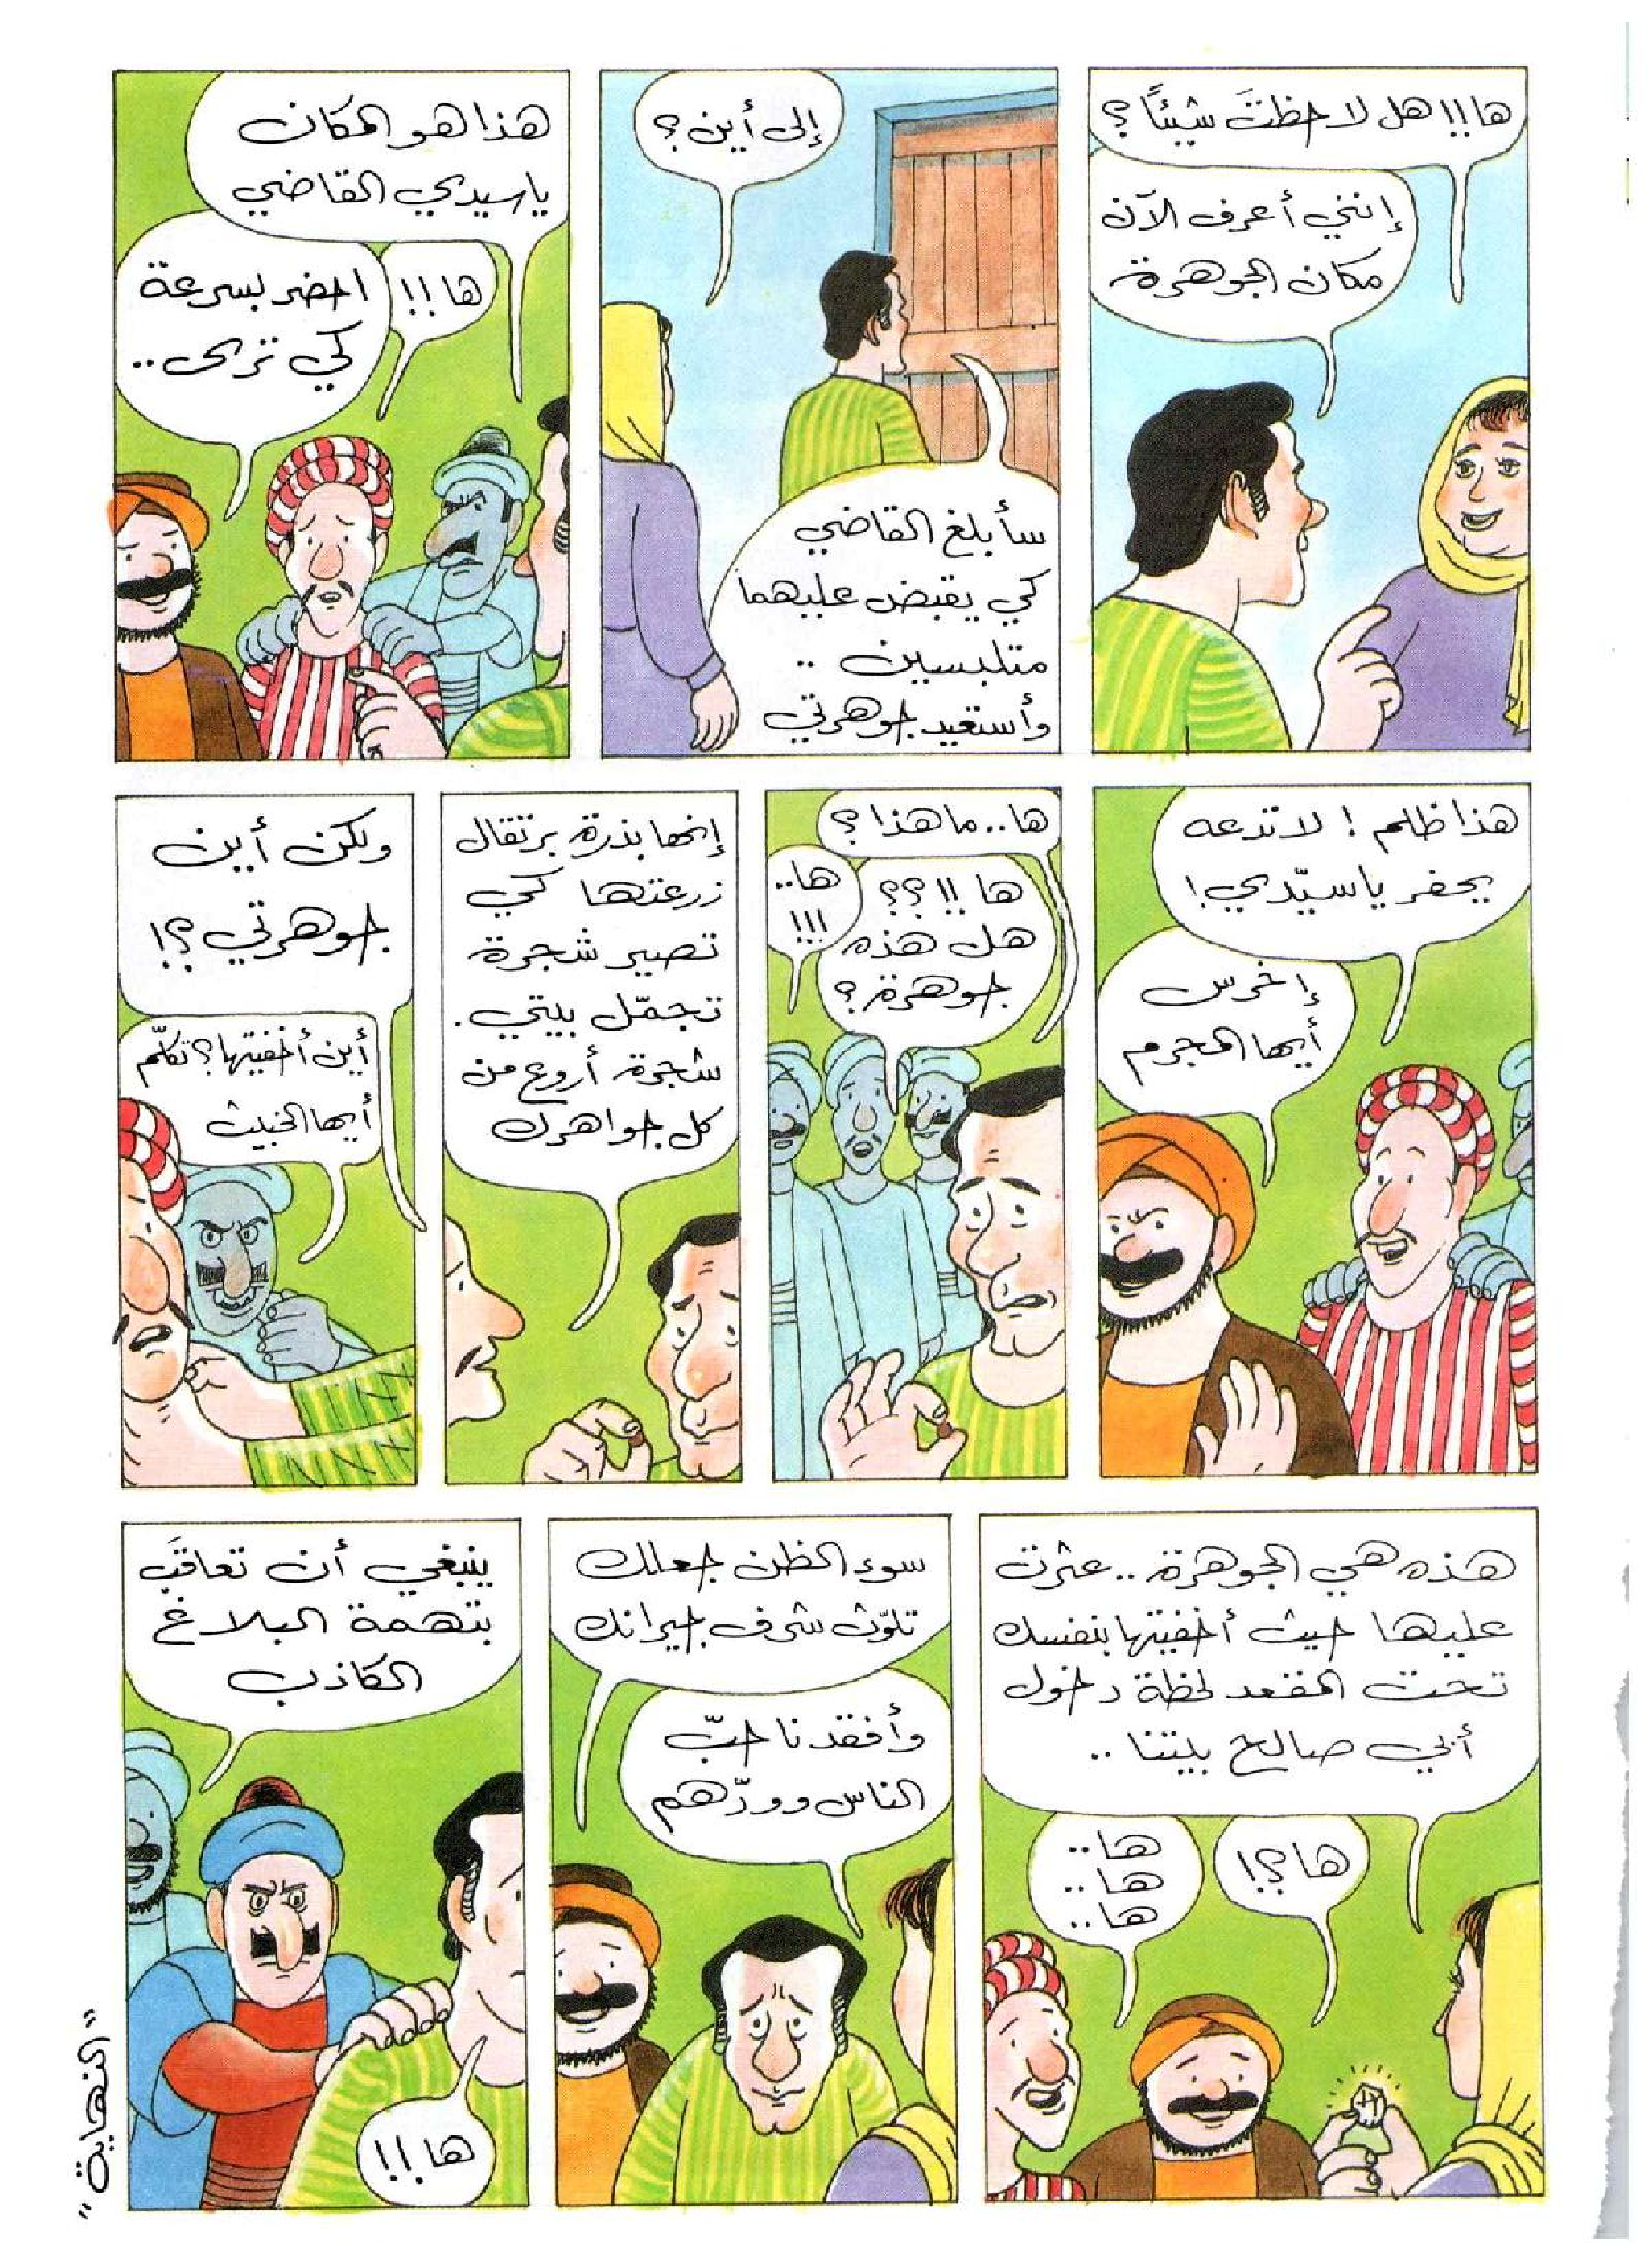 ها!! هل لاحظتَ شيئًا؟
إنني أعرف الآن
مكان الجوهرة
إلى أين؟
سأبلغ القاضي
كي يقبض عليهما
متلبسين ..
وأستعيد جوهرتي
هذا هو المكان
يا سيدي القاضي
ها!!
احضر بسرعة
كي ترى..
هذا ظلم! لا تدعه
يحفر يا سيّدي!
إخرس
أيها المجرم
ها.. ما هذا؟
ها !! ؟؟
هل هذه
جوهرة؟
ها..
!!!
إنها بذرة برتقال
زرعتها كي
تصير شجرة
تجمّل بيتي.
شجرة أروع من
كل جواهرك
ولكن أين
جوهرتي؟!
أين أخفيتها؟ تكلّم
أيها الخبيث
هذه هي الجوهرة.. عثرت
عليها حيث أخفيتها بنفسك
تحت المقعد لحظة دخول
أبي صالح بيتنا ..
ها؟!
ها..
ها..
ها..
سوء الظن جعلك
تلوّث شرف جيرانك
وأفقدنا حبّ
الناس وودّهم
ينبغي أن تعاقَب
بتهمة البلاغ
الكاذب
ها!!
"النهاية"